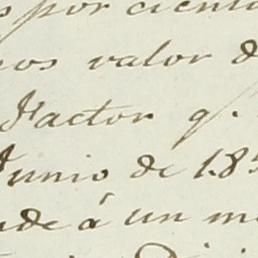 por ciento
valor d
Factor q.
Junio de 185
de á un m